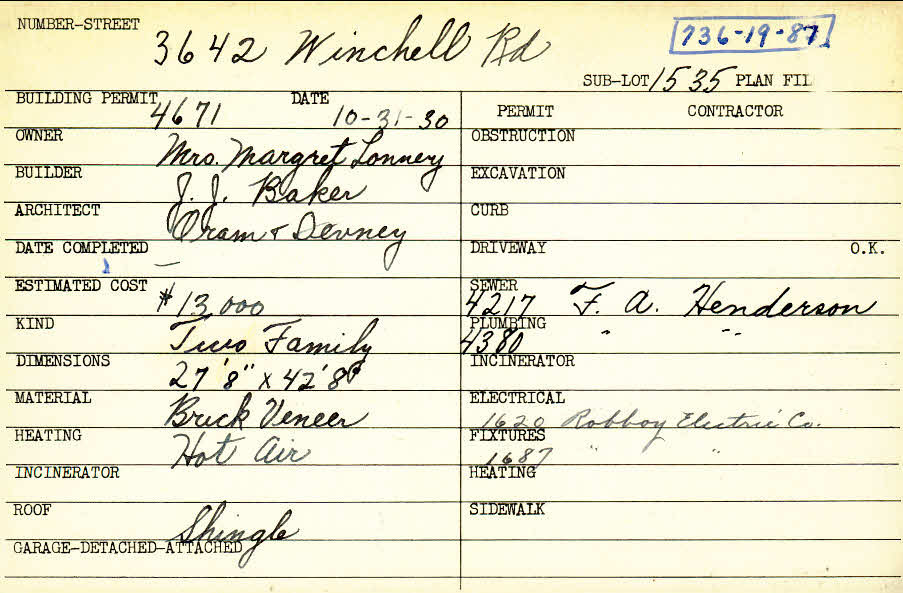 NUMBER-STREET 3642 Winchell Rd 736-19-87
SUB-LOT 1535 PLAN FIL
BUILDING PERMIT 4671 DATE 10-31-30
OWNER Mrs. Margret Lonney
BUILDER J. J. Baker
ARCHITECT Oram & Devney
DATE COMPLETED —
ESTIMATED COST $13,000
KIND Two Family
DIMENSIONS 27'8" x 42'8"
MATERIAL Brick Veneer
HEATING Hot Air
INCINERATOR
ROOF Shingle
GARAGE-DETACHED-ATTACHED
PERMIT CONTRACTOR
OBSTRUCTION
EXCAVATION
CURB
DRIVEWAY O.K.
SEWER 4217 F. A. Henderson
PLUMBING 4380 " "
INCINERATOR
ELECTRICAL 1620 Robboy Electric Co.
FIXTURES 1687 " "
HEATING
SIDEWALK